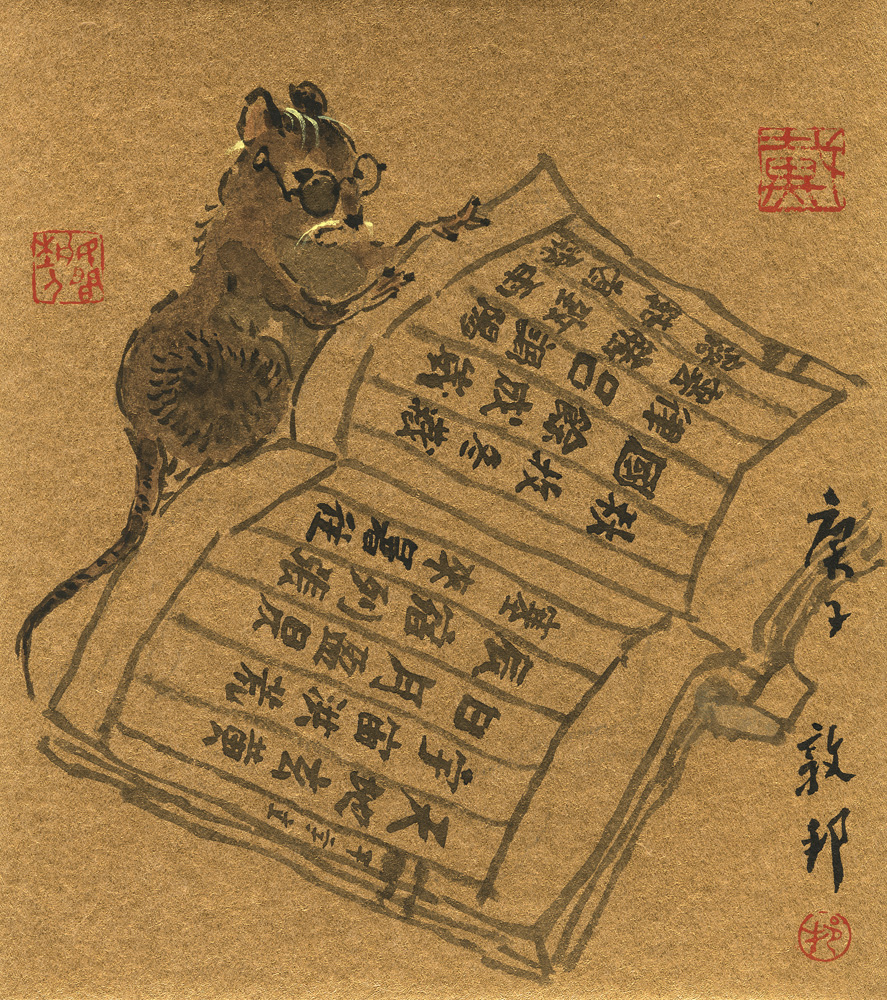 戴
千字文
天地玄黄
宇宙洪荒
日月盈昃
辰宿列張
寒來暑往
秋收冬藏
國餘成歲
律吕調陽
雲騰致雨
露結
庚子
敦邦
邦